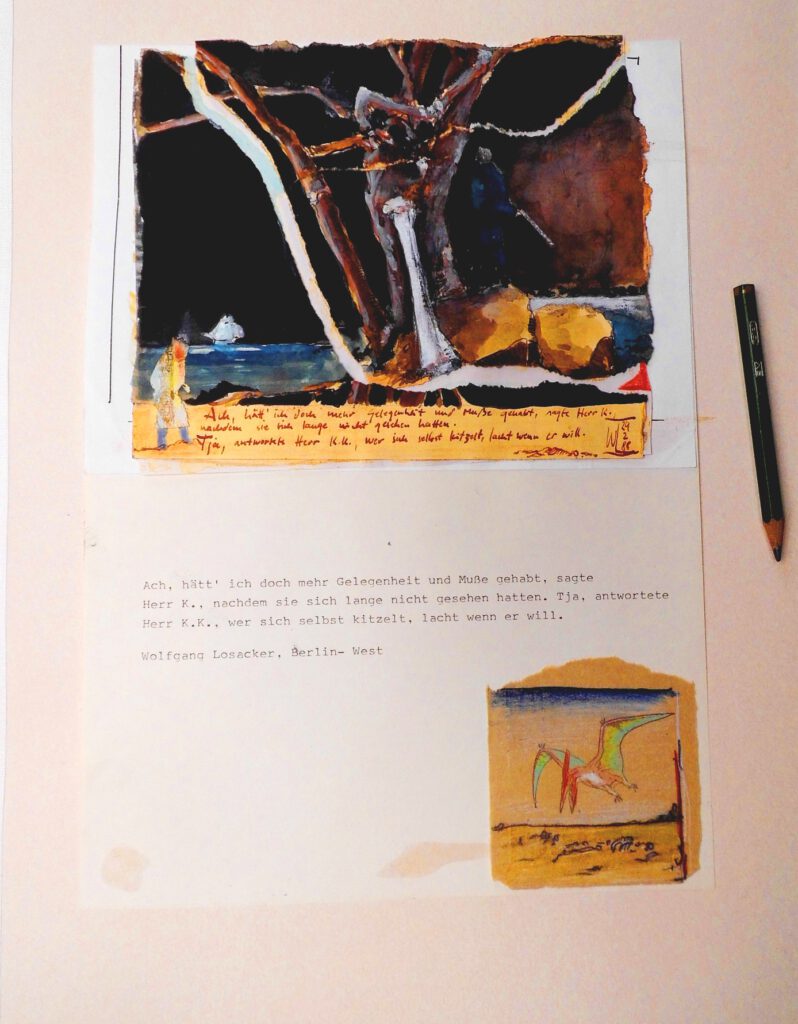 Ach, hätt' ich doch mehr Gelegenheit und Muße gehabt, sagte Herr K.
nachdem sie sich lange nicht gesehen hatten.
Tja, antwortete Herr K.K., wer sich selbst kitzelt, lacht wenn er will.
Ach, hätt' ich doch mehr Gelegenheit und Muße gehabt, sagte
Herr K., nachdem sie sich lange nicht gesehen hatten. Tja, antwortete
Herr K.K., wer sich selbst kitzelt, lacht wenn er will.
Wolfgang Losacker, Berlin- West